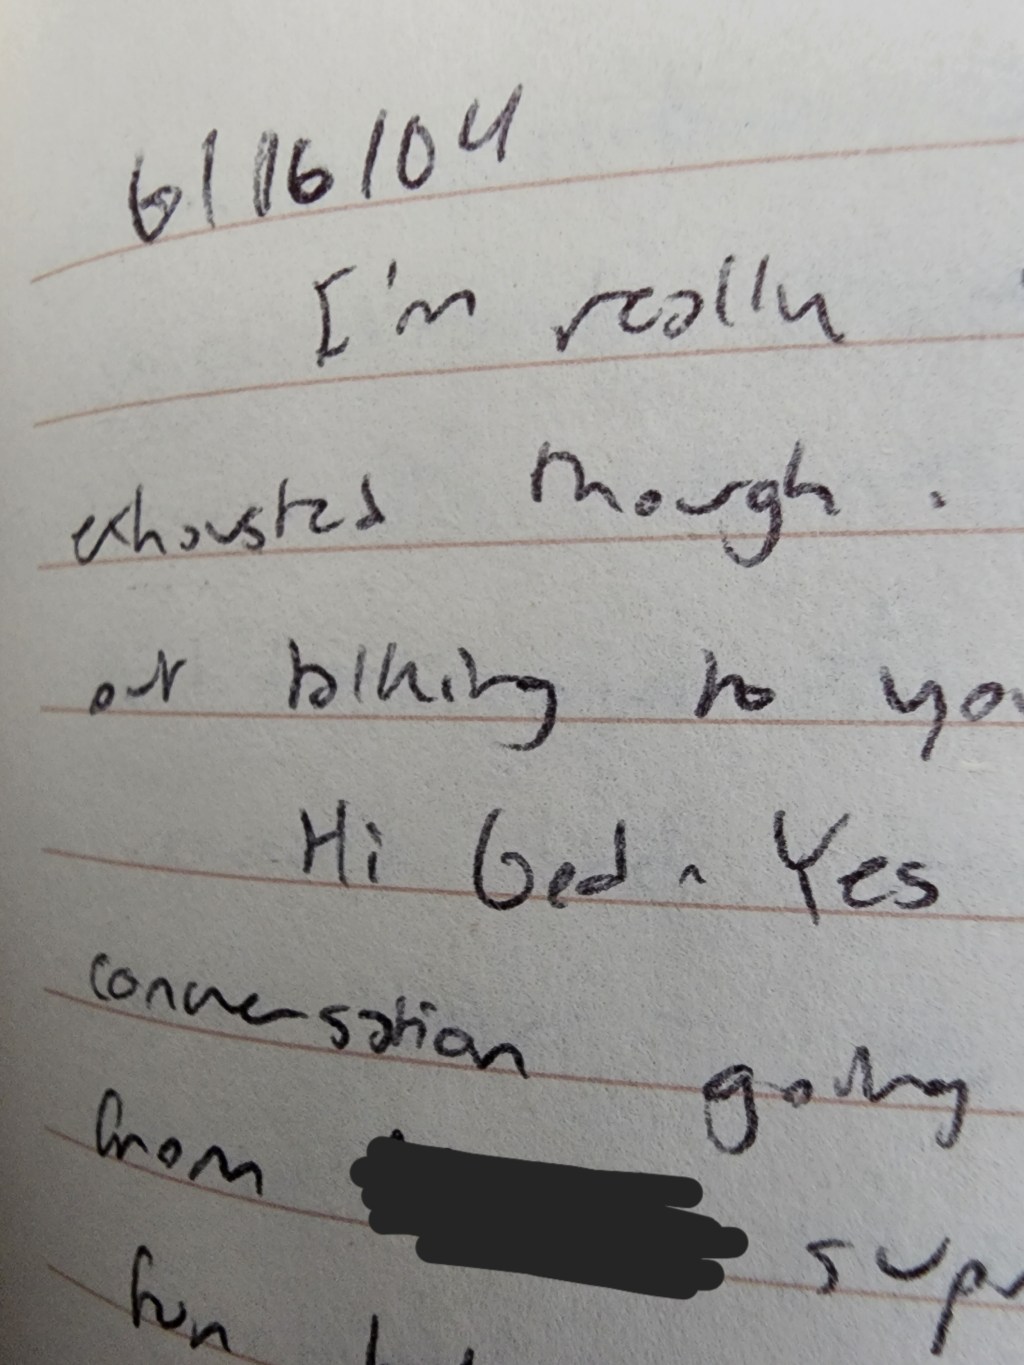 6/16/04
I'm really
exhausted though.
out talking to you
Hi Ged - Yes
conversation going
from
fun